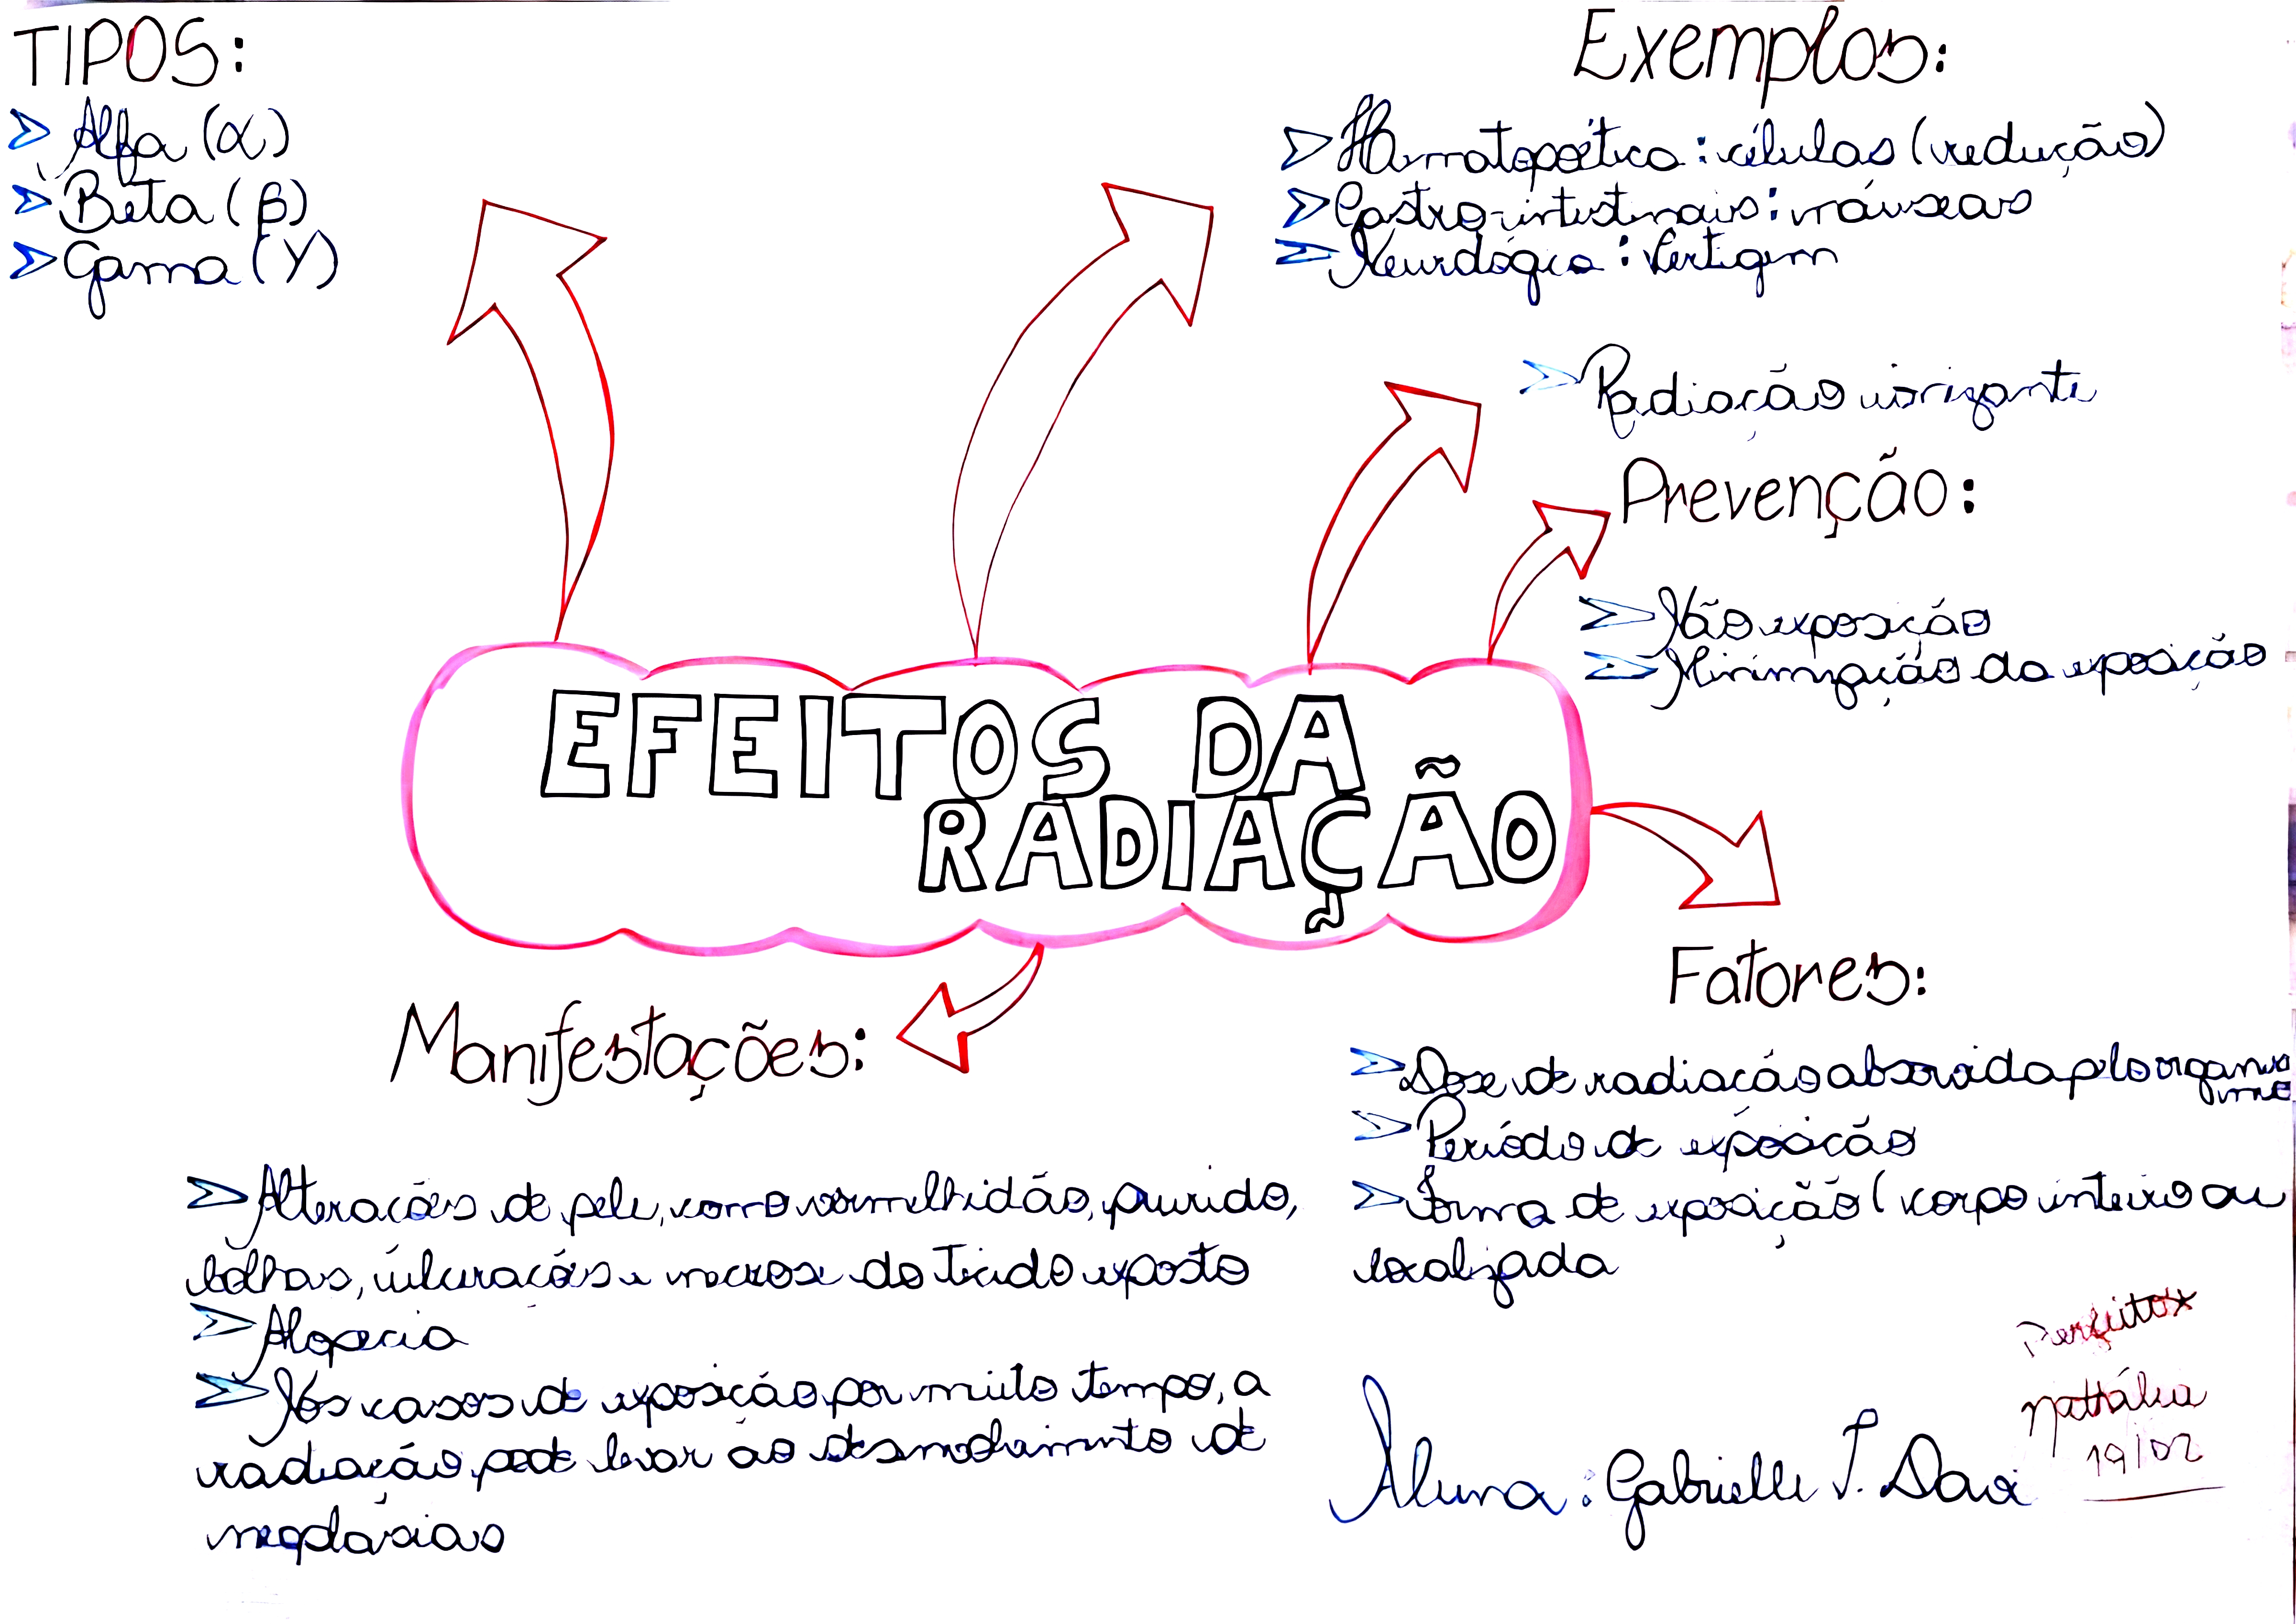 TIPOS:
> Alfa (α)
> Beta (β)
> Gama (γ)
Exemplos:
> Hematopoética: células (redução)
> Gastro-intestinais: náuseas
> Neurológica: Vertigem
> Radiação ionizante
Prevenção:
> Não exposição
> Minimização da exposição
EFEITOS DA
RADIAÇÃO
Fatores:
> Dose de radiação absorvida pelo organis
mo
> Período de exposição
> Forma de exposição (corpo inteiro ou
localizada
Manifestações:
> Alterações de pele, como vermelhidão, prurido,
bolhas, ulcerações e necrose do Tecido exposto
> Alopecia
> Nos casos de exposição por muito tempo, a
radiação pode levar ao desenvolvimento de
neoplasias
Perfeito*
Nathália
19/02
Aluna: Gabrielle T. Davi